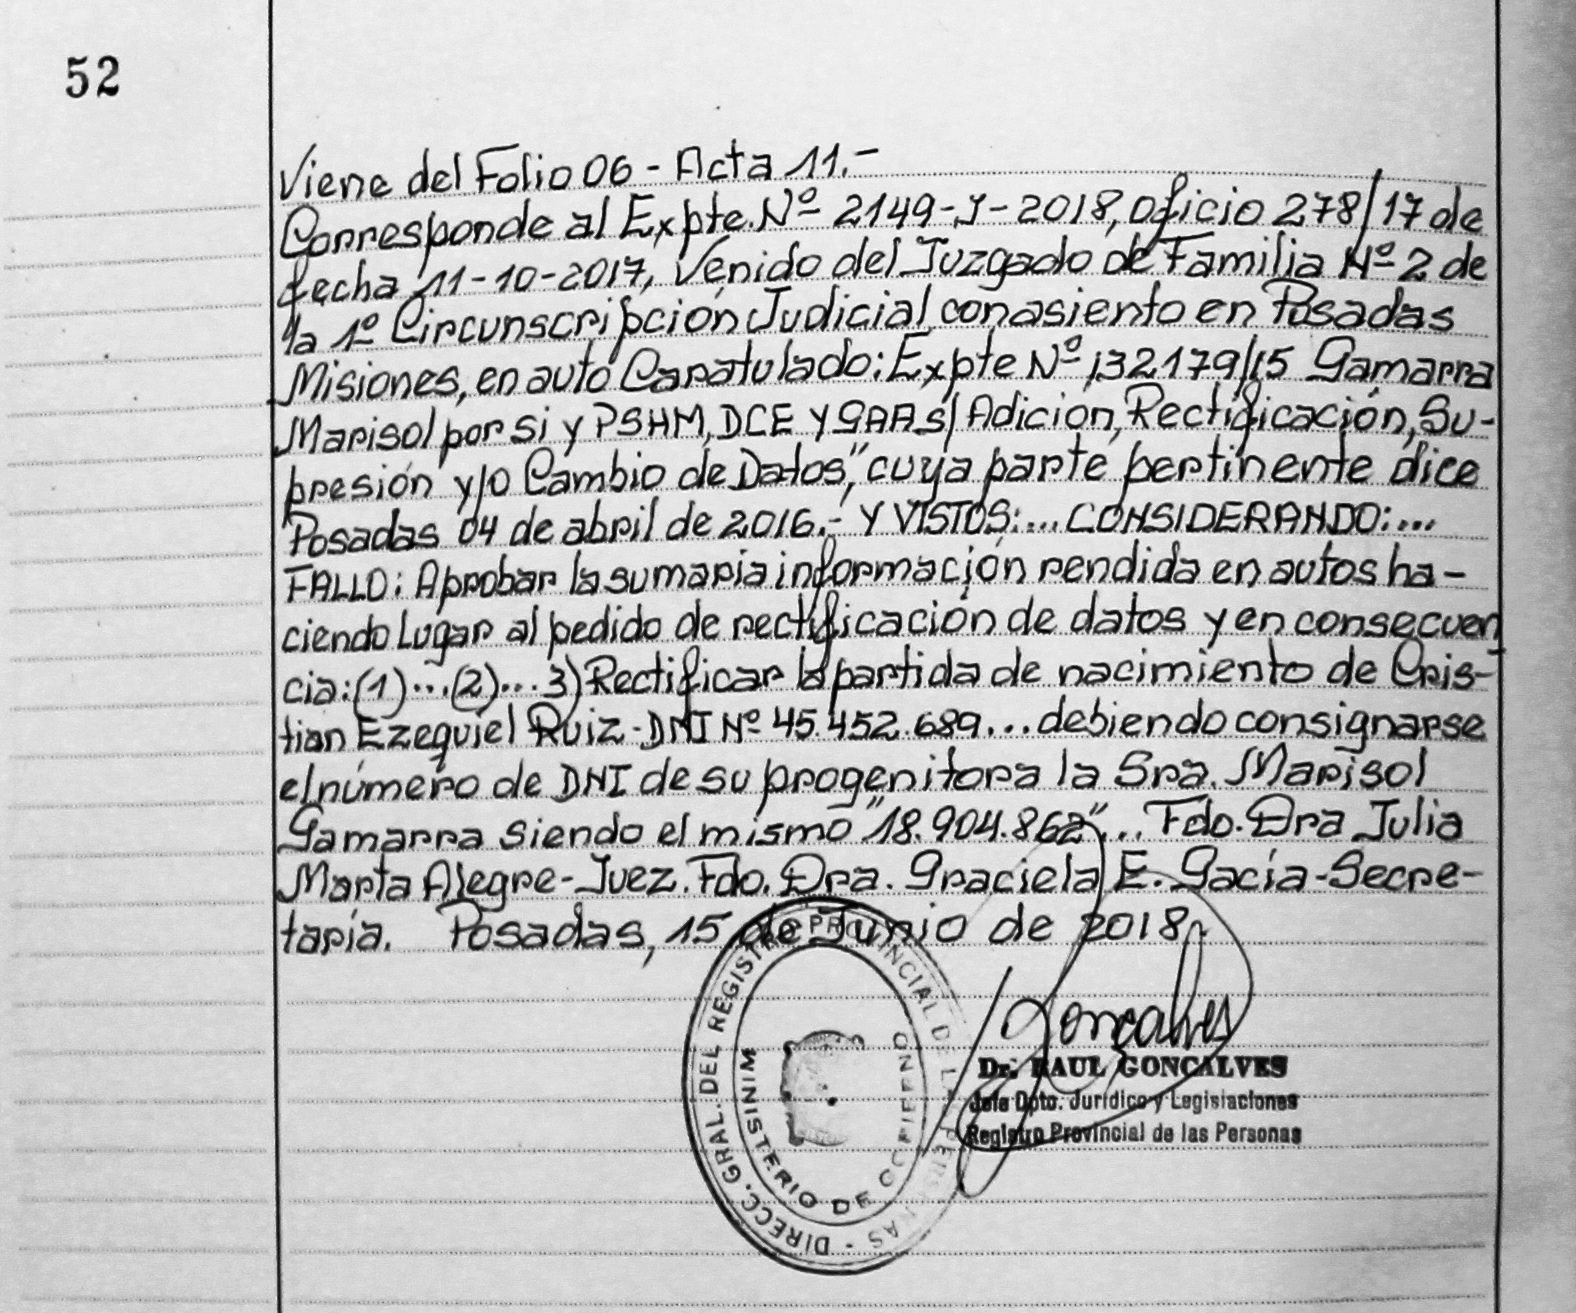 52
Viene del Folio 06 - Acta 11.-
Corresponde al Expte. Nº 2149-J-2018, oficio 278/17 de
fecha 11-10-2017, Venido del Juzgado de Familia Nº 2 de
la 1º Circunscripción Judicial con asiento en Posadas
Misiones, en auto Caratulado: Expte Nº 132179/15 Gamarra
Marisol por si y PSHM, DCE Y GAA s/ Adición, Rectificación, Su-
presión y/o Cambio de Datos", cuya parte pertinente dice
Posadas 04 de abril de 2016.- Y VISTOS:... CONSIDERANDO:...
FALLO: Aprobar la sumaria información rendida en autos ha-
ciendo Lugar al pedido de rectificación de datos y en consecuen
cia: (1)...(2)... 3) Rectificar la partida de nacimiento de Cris-
tian Ezequiel Ruiz - DNI Nº 45.452.689... debiendo consignarse
el número de DNI de su progenitora la Sra. Marisol
Gamarra siendo el mismo "18.904.862"... Fdo. Dra Julia
Marta Alegre - Juez. Fdo. Dra. Graciela E. Gacía - Secre-
taria. Posadas, 15 de Junio de 2018.
Goncalves
Dr. RAUL GONCALVES
Jefe Dpto. Jurídico y Legislaciones
Registro Provincial de las Personas
DIRECC. GRAL. DEL REGISTRO PROVINCIAL DE LAS PERSONAS -
MINISTERIO DE GOBIERNO